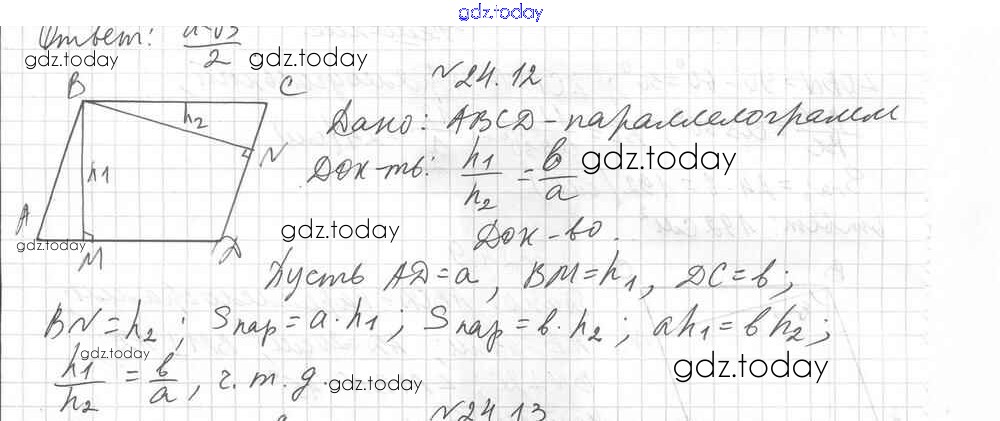 gdz.today
Ответ: a√3/2
gdz.today gdz.today
№24.12
B C
h2
Дано: ABCD-параллелограмм
N
h1
Док-ть: h1/h2 = b/a gdz.today
A
gdz.today gdz.today
M D
Док-во:
Пусть AD=a, BM=h1, DC=b;
BN=h2; Sпар=a·h1; Sпар=b·h2; ah1=bh2;
gdz.today gdz.today
h1/h2 = b/a, ч.т.д. gdz.today
№24.13